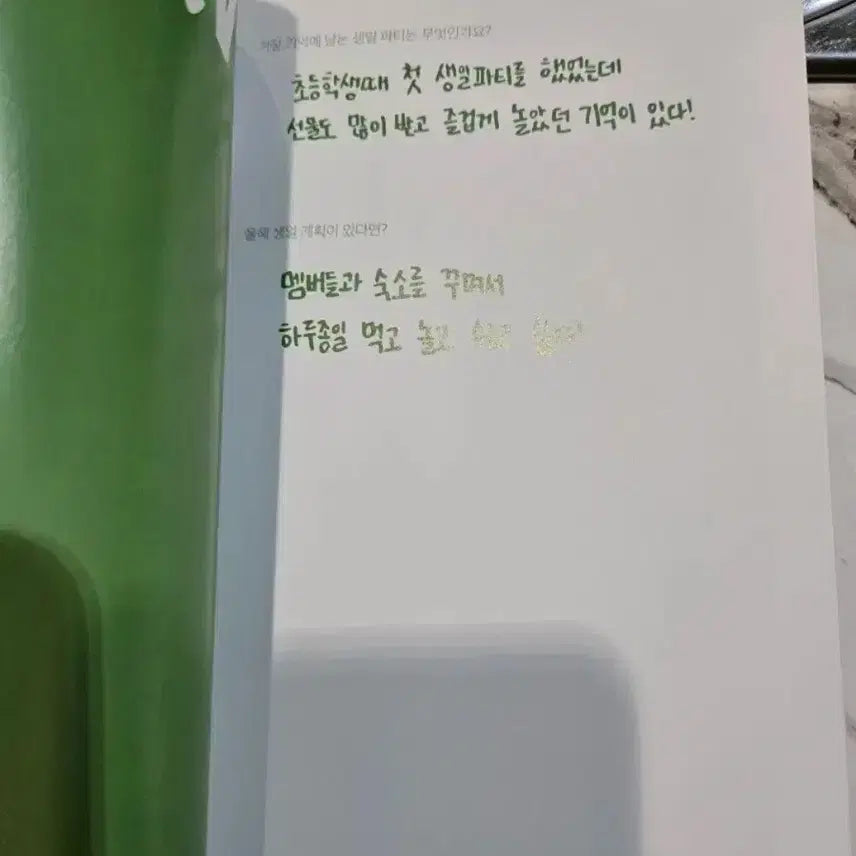 가장 기억에 남는 생일 파티는 무엇인가요?
초등학생때 첫 생일파티를 했었는데
선물도 많이 받고 즐겁게 놀았던 기억이 있다!
올해 생일 계획이 있다면?
멤버들과 숙소를 꾸며서
하루종일 먹고 놀고